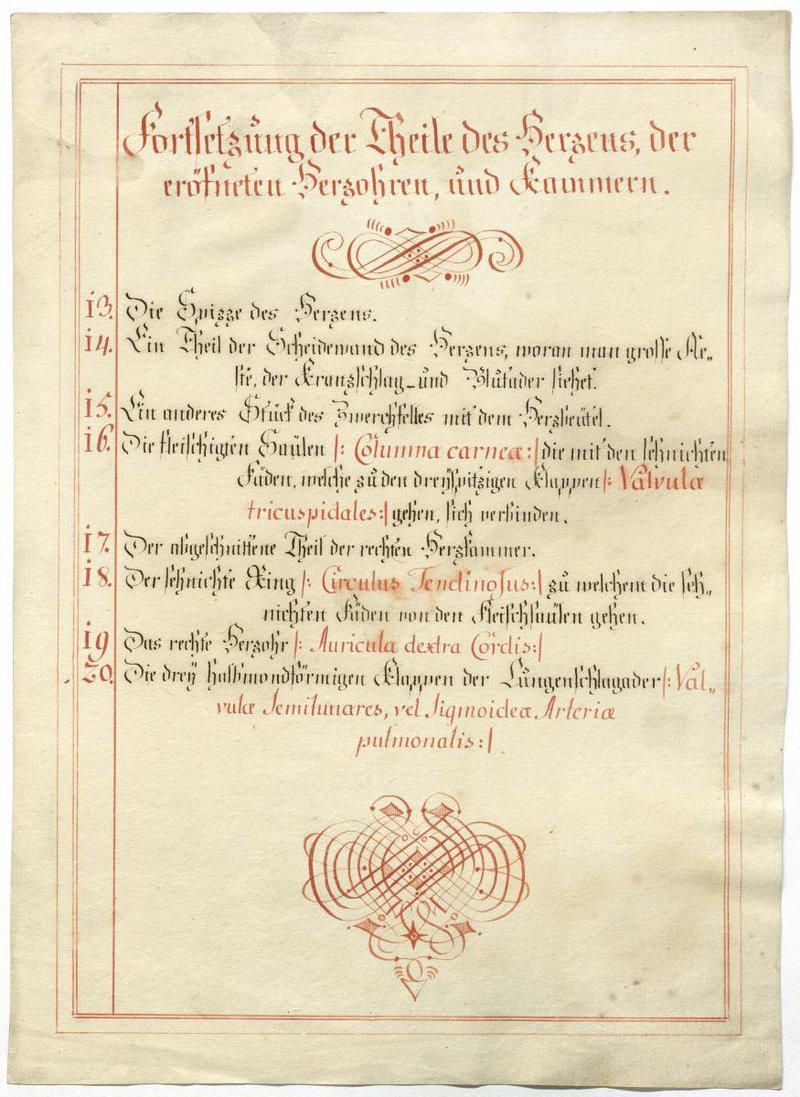 Fortsetzung der Theile des Herzens, der
eröfneten Herzohren, und Kammern.
13. Die Spizze des Herzens.
14. Ein Theil der Scheidewand des Herzens, woran man große Ae„
ste, der Kranzschlag_und Blutader siehet.
15. Ein anderes Stück des Zwerchfelles mit dem Herzbeutel.
16. Die fleischigten Säulen |: Columna carneæ:| die mit den sehnichten
Fäden, welche zu den dreyspitzigen Klappen |: Valvulæ
tricuspidales:| gehen, sich verbinden.
17. Der abgeschnittene Theil der rechten Herzkammer.
18. Der sehnichte Ring |: Circulus Tendinosus:| zu welchem die seh„
nichten Fäden von den Fleischsäulen gehen.
19 Das rechte Herzohr |: Auricula dextra Cordis:|
20. Die drey halbmondförmigen Klappen der Lungenschlagader |: Val„
vulæ Semilunares, vel Sigmoideæ Arteriæ
pulmonalis:|